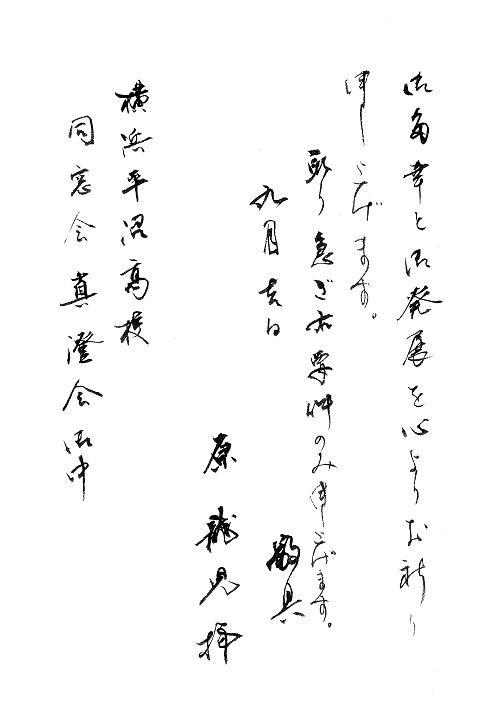 御多幸と御発展を心よりお祈り
申し上げます。
取り急ぎ御礼のみ申し上げます。
敬具
九月吉日
原龍児拝
横浜平沼高校
同窓会真澄会御中